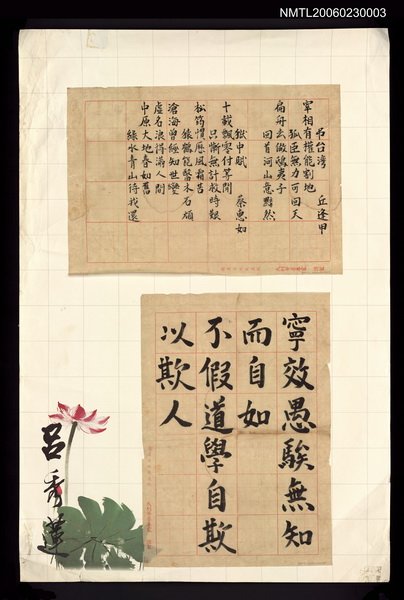 NMTL20060230003
弔台灣 丘逢甲
宰相有權能割地
孤臣無力可回天
扁舟去做鴟夷子
回首河山意黯然
獄中賦 蔡惠如
十載飄零付等閒
只慚無計救時艱
松筠慣歷風霜苦
猿鶴能醫木石頑
滄海曾經知世變
虛名浪得滿人間
中原大地春如舊
綠水青山待我還
寧效愚騃無知
而自如
不假道學自欺
以欺人
呂秀蓮